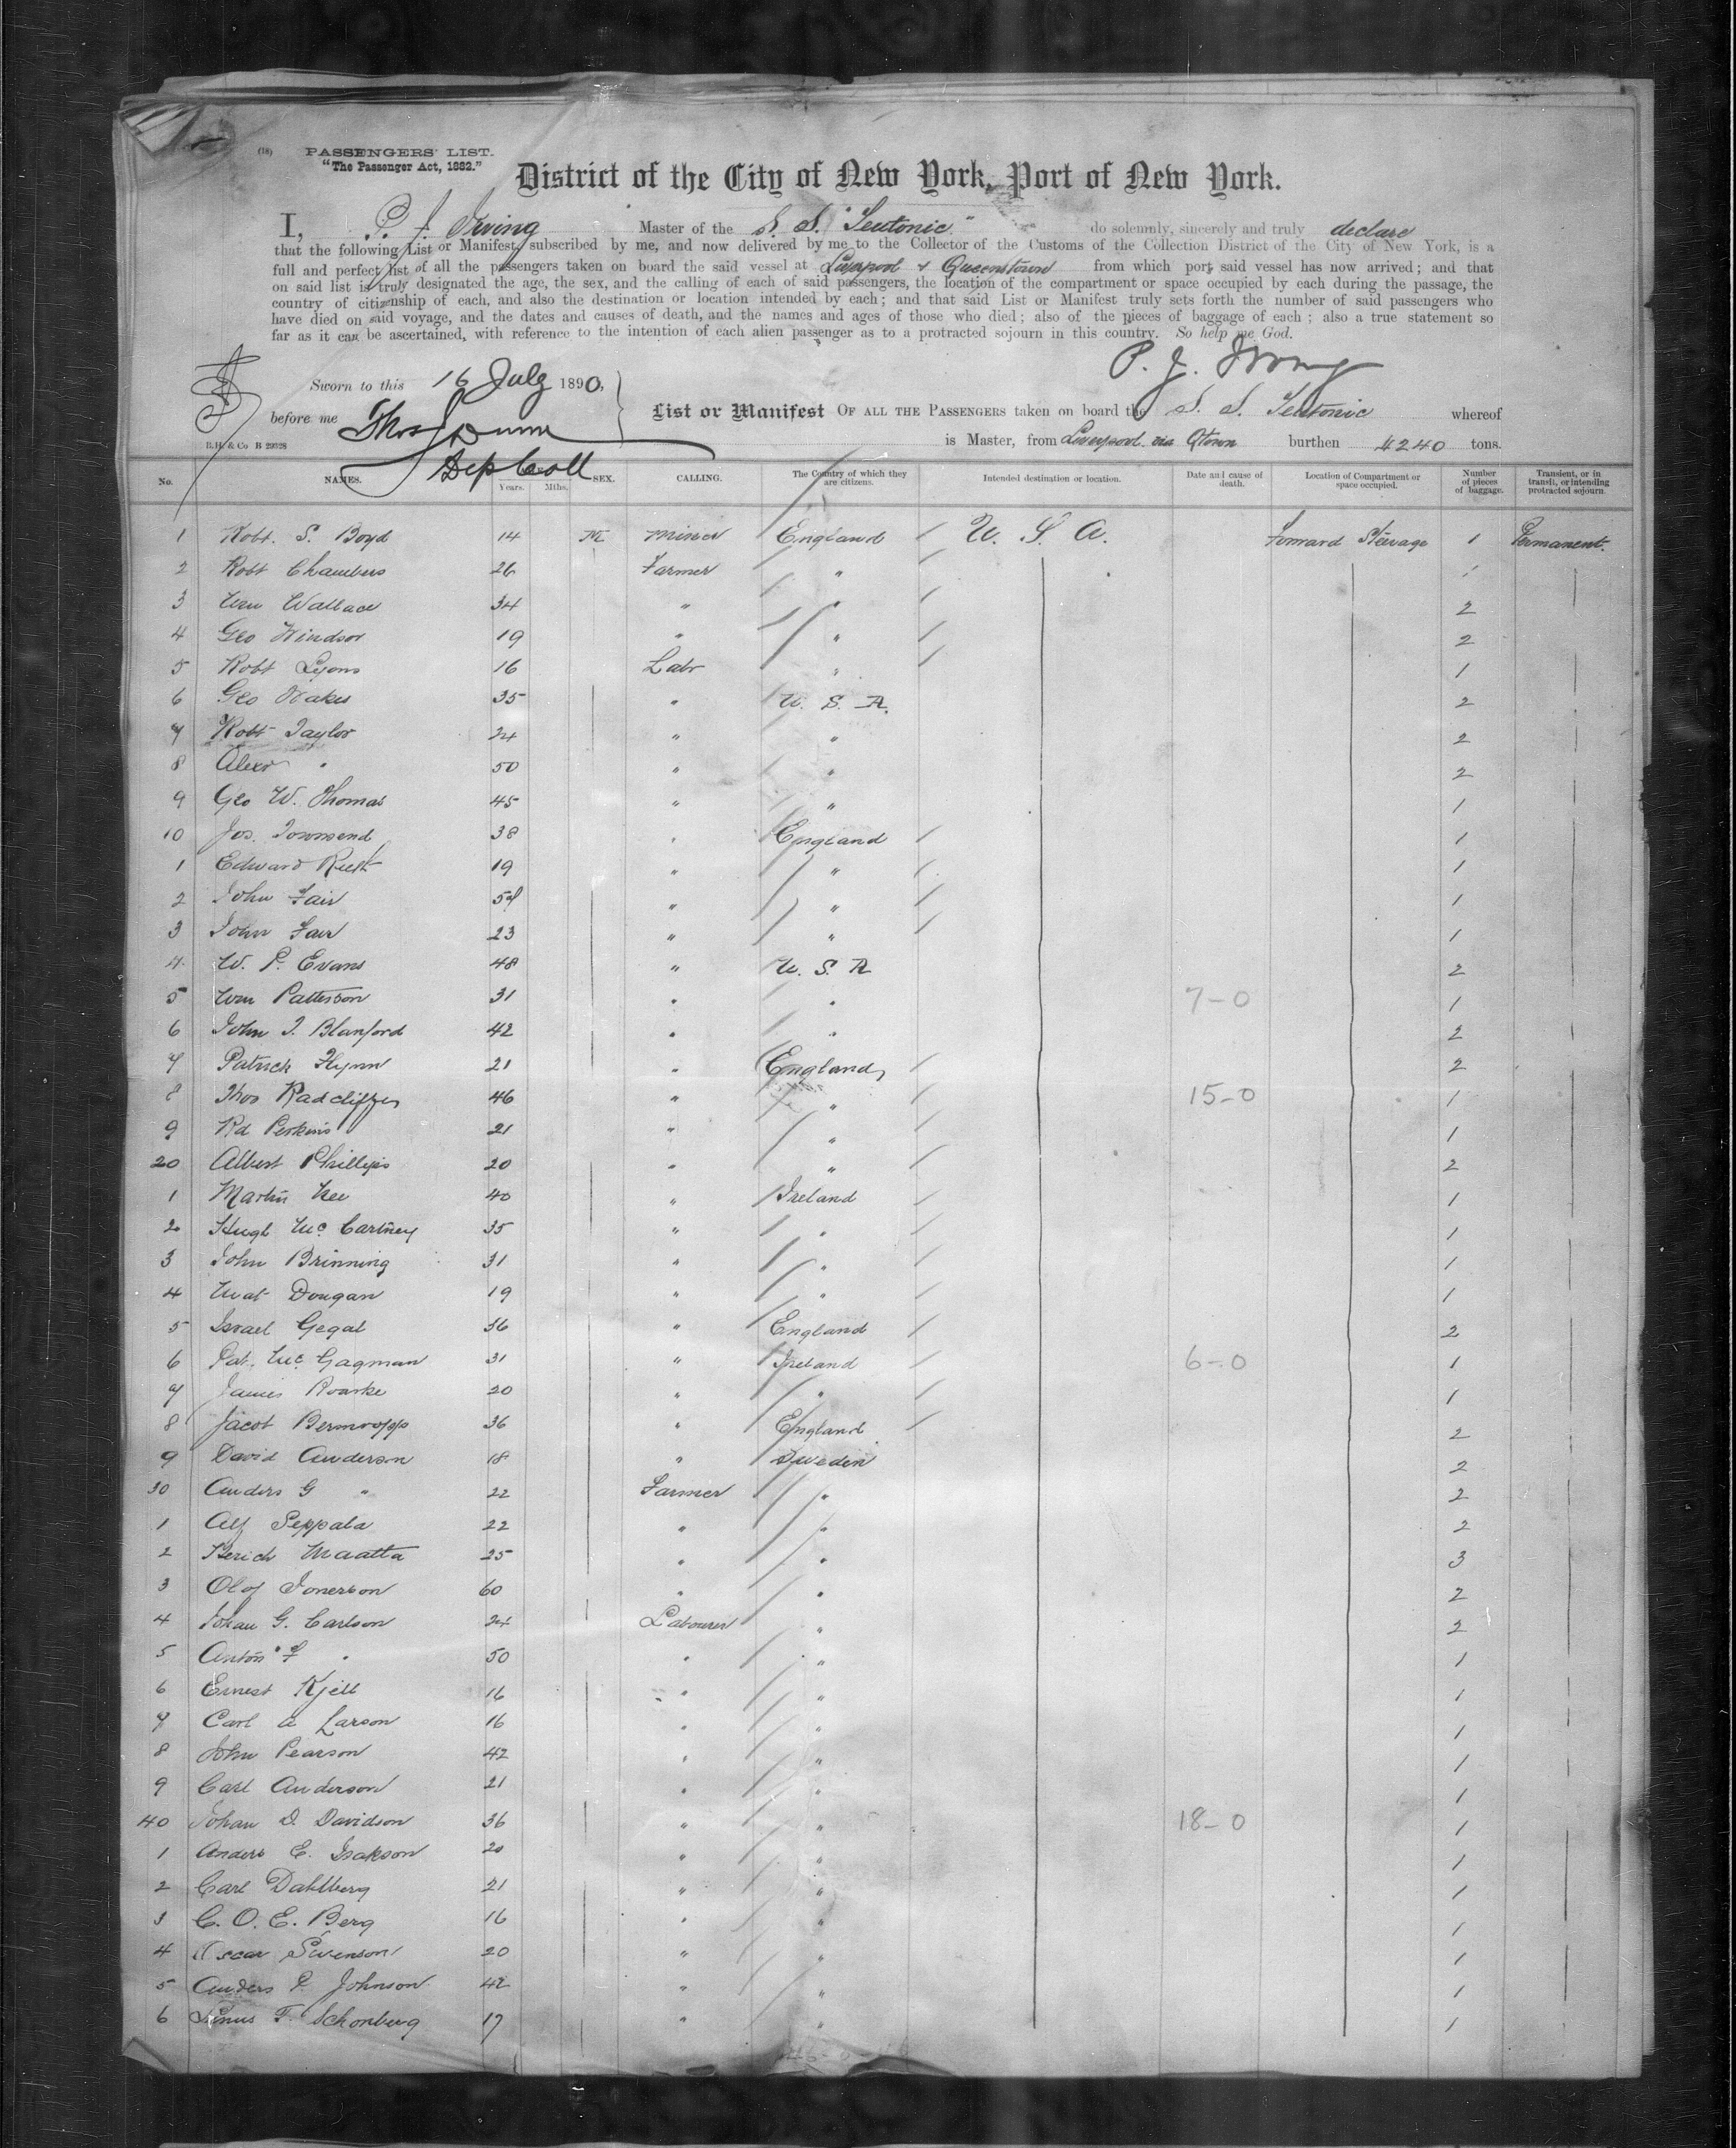 (18) PASSENGERS' LIST.
"The Passenger Act, 1882."
District of the City of New York, Port of New York.
I, P. J. Irving Master of the S. S. "Teutonic" do solemnly, sincerely and truly declare
that the following List or Manifest, subscribed by me, and now delivered by me to the Collector of the Customs of the Collection District of the City of New York, is a
full and perfect list of all the passengers taken on board the said vessel at Liverpool & Queenstown from which port said vessel has now arrived; and that
on said list is truly designated the age, the sex, and the calling of each of said passengers, the location of the compartment or space occupied by each during the passage, the
country of citizenship of each, and also the destination or location intended by each; and that said List or Manifest truly sets forth the number of said passengers who
have died on said voyage, and the dates and causes of death, and the names and ages of those who died; also of the pieces of baggage of each; also a true statement so
far as it can be ascertained, with reference to the intention of each alien passenger as to a protracted sojourn in this country. So help me God.
P. J. Irving
Sworn to this 16 July 1890,
before me Thos Dunn
Dep Coll
List or Manifest OF ALL THE PASSENGERS taken on board the S. S. Teutonic whereof
R.H. & Co B 29328
is Master, from Liverpool via Qtown burthen 4240 tons.
No. NAMES. Years. Mths. SEX. CALLING. The Country of which they are citizens. Intended destination or location. Date and cause of death. Location of Compartment or space occupied. Number of pieces of baggage. Transient, or in transit, or intending protracted sojourn.
1 Robt. S. Boyd 14 M Miner England U. S. A. Forward Steerage 1 Permanent.
2 Robt Chambers 26 Farmer " 1
3 Wm Wallace 34 " " 2
4 Geo Windsor 19 " " 2
5 Robt Lyons 16 Labr " 1
6 Geo 35 " U. S. A. 2
7 Robt Taylor 24 " " 2
8 Alexr " 50 " " 2
9 Geo W. Thomas 45 " " 1
10 Jos. Townsend 38 " England 1
1 Edward 19 " " 1
2 John Fair " " 1
3 John Fair 23 " " 1
4 W. P. Evans 48 " U. S. A 2
5 Wm Patterson 31 " " 7-0 1
6 John J. Blanford 42 " " 2
7 Patrick Flynn 21 " England 2
8 Thos Radcliffe 46 " " 15-0 1
9 Rd Perkins 21 " " 1
20 Albert Phillips 20 " " 2
1 Martin 40 " Ireland 1
2 Hugh McCartney 35 " " 1
3 John Brinning 31 " " 1
4 Mat Dougan 19 " " 1
5 Israel Gegal 36 " England 2
6 Pat. McGagman 31 " Ireland 6-0 1
7 James Roarke 20 " " 1
8 Jacob 36 " England 2
9 David Anderson 18 " Sweden 2
30 Anders G " 22 Farmer " 2
1 Alf Seppala 22 " " 2
2 Maatta 25 " " 3
3 Olof Jonerson 60 " " 2
4 Johan G. Carlson 24 Labourer " 2
5 Anton F " 50 " " 1
6 Ernest Kjell 16 " " 1
7 Carl A Larson 16 " " 1
8 John Pearson 42 " " 1
9 Carl Anderson 21 " " 1
40 Johan D. Davidson 36 " " 18-0 1
1 Anders E. Isakson 20 " " 1
2 Carl Dahlberg 21 " " 1
3 C. O. E. Berg 16 " " 1
4 Oscar Swenson 20 " " 1
5 Anders P. Johnson 42 " " 1
6 Linus F. Schonberg 17 " " 1